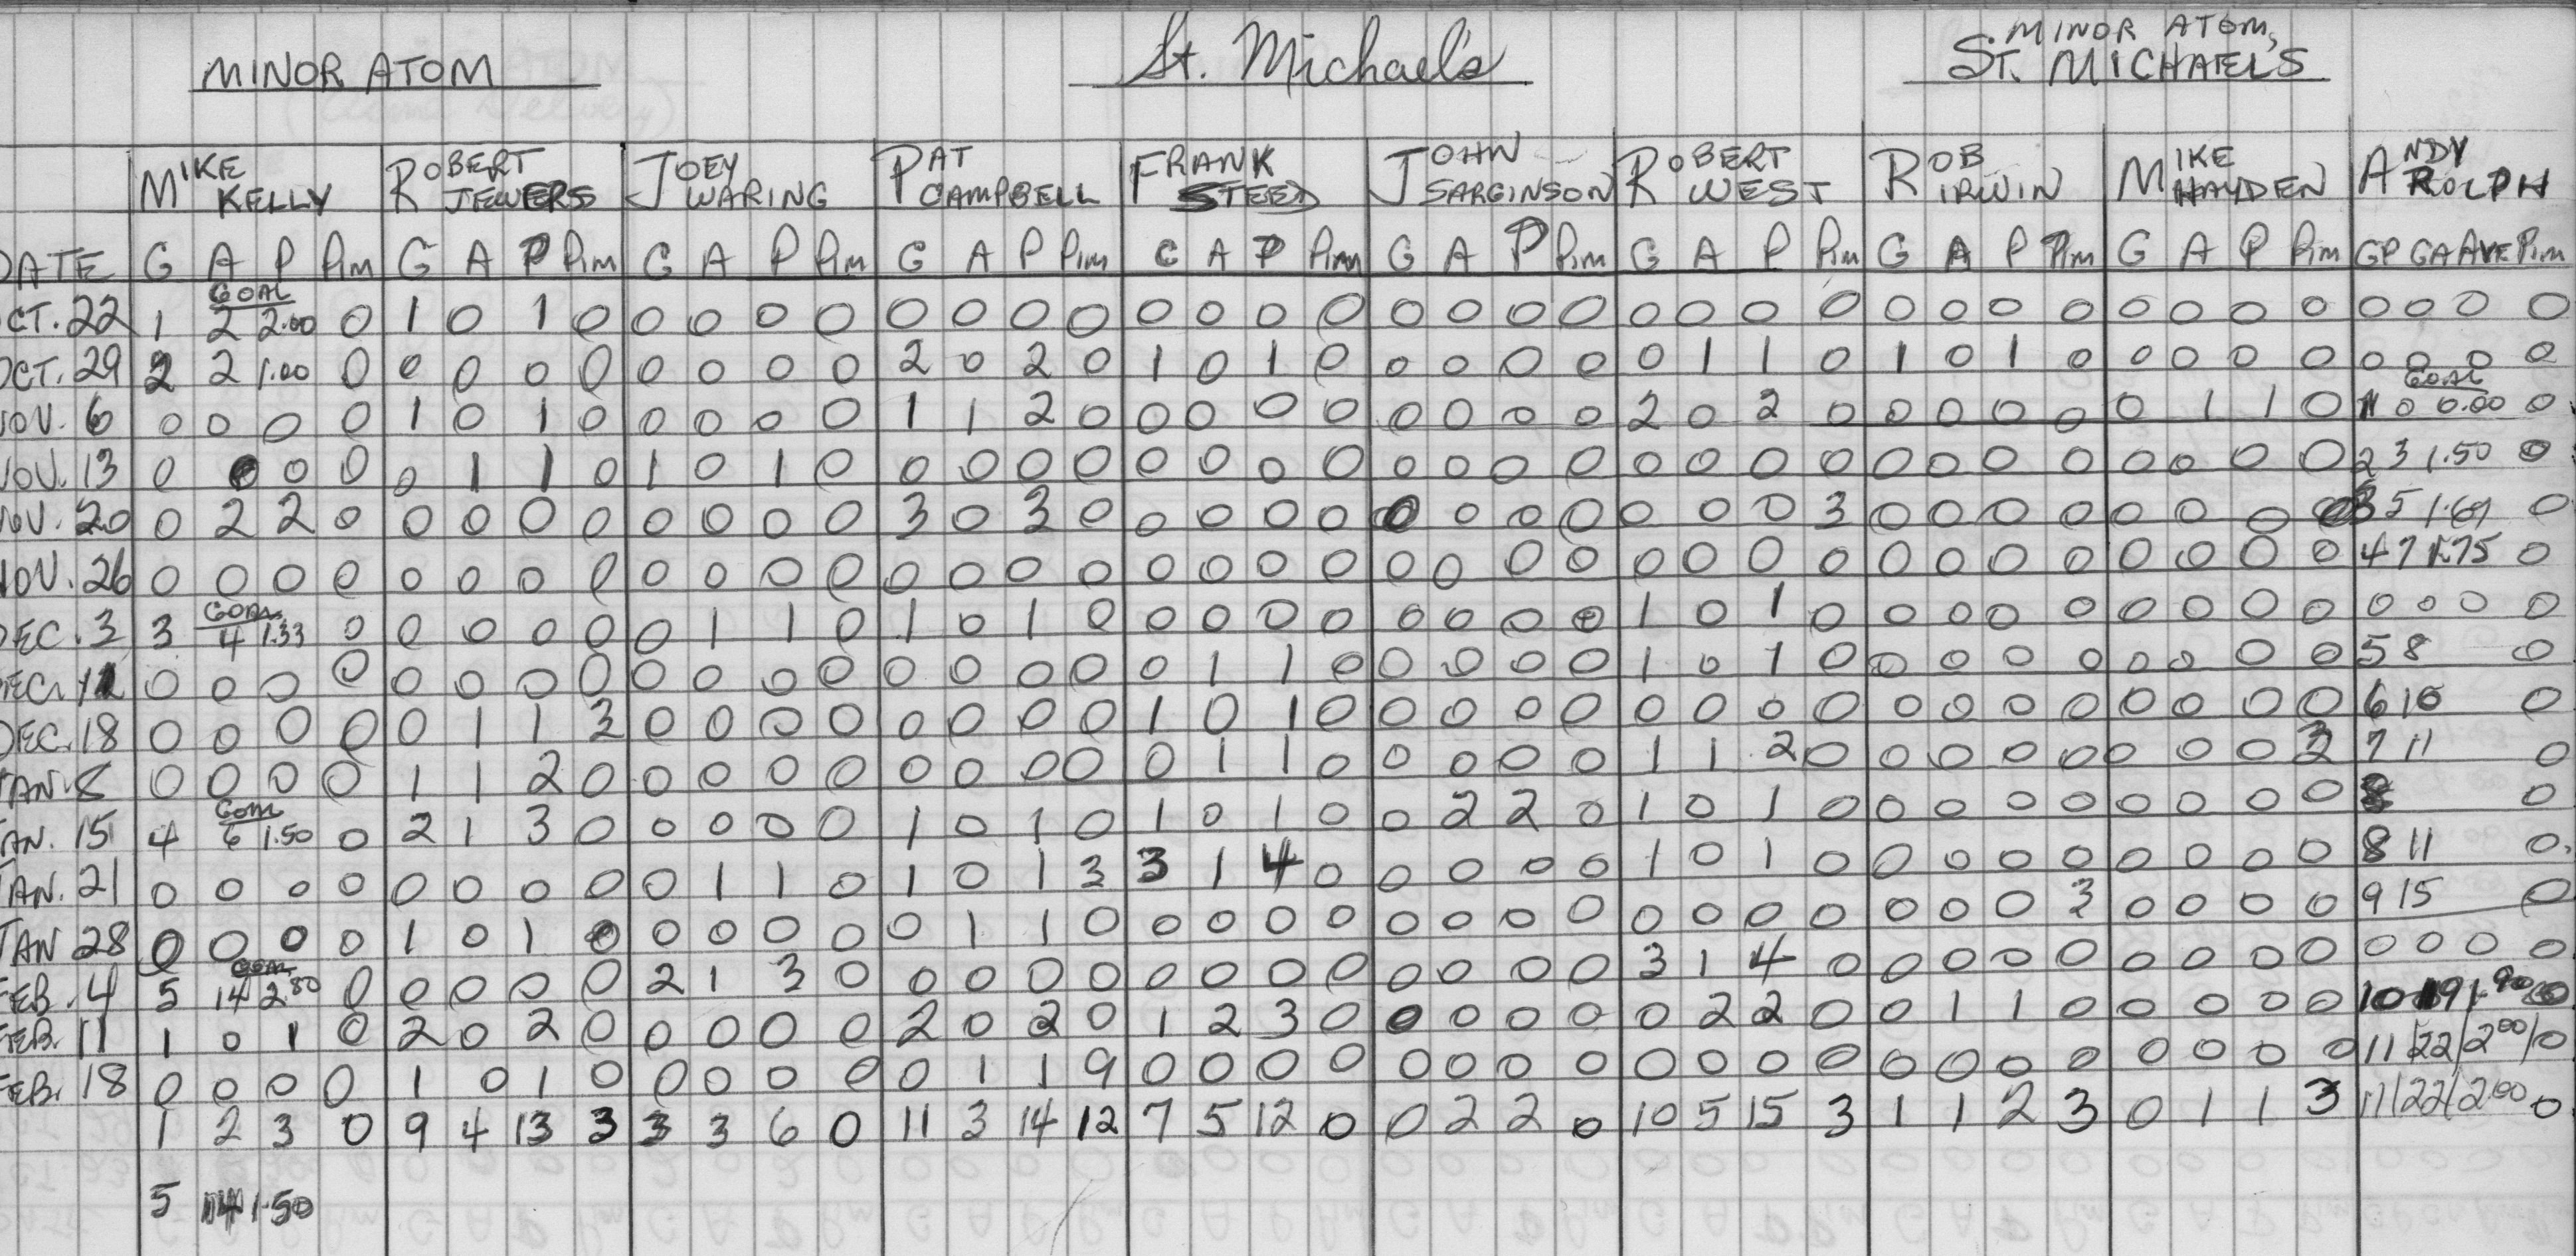 MINOR ATOM St. Michael's MINOR ATOM,
ST. MICHAEL'S
MIKE KELLY ROBERT JEWERS JOEY WARING PAT CAMPBELL FRANK STEED JOHN SARGINSON ROBERT WEST ROB IRWIN MIKE HAYDEN ANDY ROLPH
DATE G A P Pim G A P Pim G A P Pim G A P Pim G A P Pim G A P Pim G A P Pim G A P Pim G A P Pim GP GA AVE Pim
OCT. 22 1 GOAL 2 2.00 0 1 0 1 0 0 0 0 0 0 0 0 0 0 0 0 0 0 0 0 0 0 0 0 0 0 0 0 0 0 0 0 0 0 0 0 0
OCT. 29 2 2 1.00 0 0 0 0 0 0 0 0 0 2 0 2 0 1 0 1 0 0 0 0 0 0 1 1 0 1 0 1 0 0 0 0 0 0 0 0 0
NOV. 6 0 0 0 0 1 0 1 0 0 0 0 0 1 1 2 0 0 0 0 0 0 0 0 0 2 0 2 0 0 0 0 0 0 1 1 0 1 GOAL 0 0.00 0
NOV. 13 0 0 0 0 0 1 1 0 1 0 1 0 0 0 0 0 0 0 0 0 0 0 0 0 0 0 0 0 0 0 0 0 0 0 0 0 2 3 1.50 0
NOV. 20 0 2 2 0 0 0 0 0 0 0 0 0 3 0 3 0 0 0 0 0 0 0 0 0 0 0 0 3 0 0 0 0 0 0 0 0 3 5 1.67 0
NOV. 26 0 0 0 0 0 0 0 0 0 0 0 0 0 0 0 0 0 0 0 0 0 0 0 0 0 0 0 0 0 0 0 0 0 0 0 0 4 7 1.75 0
DEC. 3 3 GOAL 4 1.33 0 0 0 0 0 0 1 1 0 1 0 1 0 0 0 0 0 0 0 0 0 1 0 1 0 0 0 0 0 0 0 0 0 0 0 0 0
DEC. 0 0 0 0 0 0 0 0 0 0 0 0 0 0 0 0 0 1 1 0 0 0 0 0 1 0 1 0 0 0 0 0 0 0 0 0 5 8 0
DEC. 18 0 0 0 0 0 1 1 3 0 0 0 0 0 0 0 0 1 0 1 0 0 0 0 0 0 0 0 0 0 0 0 0 0 0 0 0 6 10 0
JAN. 8 0 0 0 0 1 1 2 0 0 0 0 0 0 0 0 0 0 1 1 0 0 0 0 0 1 1 2 0 0 0 0 0 0 0 0 3 7 11 0
JAN. 15 4 GOAL 6 1.50 0 2 1 3 0 0 0 0 0 1 0 1 0 1 0 1 0 0 2 2 0 1 0 1 0 0 0 0 0 0 0 0 0 0
JAN. 21 0 0 0 0 0 0 0 0 0 1 1 0 1 0 1 3 3 1 4 0 0 0 0 0 1 0 1 0 0 0 0 0 0 0 0 0 8 11 0
JAN 28 0 0 0 0 1 0 1 0 0 0 0 0 0 1 1 0 0 0 0 0 0 0 0 0 0 0 0 0 0 0 0 3 0 0 0 0 9 15 0
FEB. 4 5 GOAL 14 2.80 0 0 0 0 0 2 1 3 0 0 0 0 0 0 0 0 0 0 0 0 0 3 1 4 0 0 0 0 0 0 0 0 0 0 0 0 0
FEB. 11 1 0 1 0 2 0 2 0 0 0 0 0 2 0 2 0 1 2 3 0 0 0 0 0 0 2 2 0 0 1 1 0 0 0 0 0 10 19 1.90 0
FEB. 18 0 0 0 0 1 0 1 0 0 0 0 0 0 1 1 9 0 0 0 0 0 0 0 0 0 0 0 0 0 0 0 0 0 0 0 0 11/22/2.00/0
1 2 3 0 9 4 13 3 3 3 6 0 11 3 14 12 7 5 12 0 0 2 2 0 10 5 15 3 1 1 2 3 0 1 1 3 11/22/2.00 0
5 14 1.50